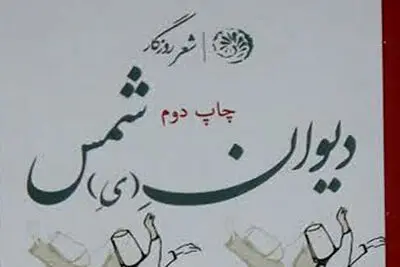 شعر روزگار
چاپ دوم
دیوانِ (یِ) شمس